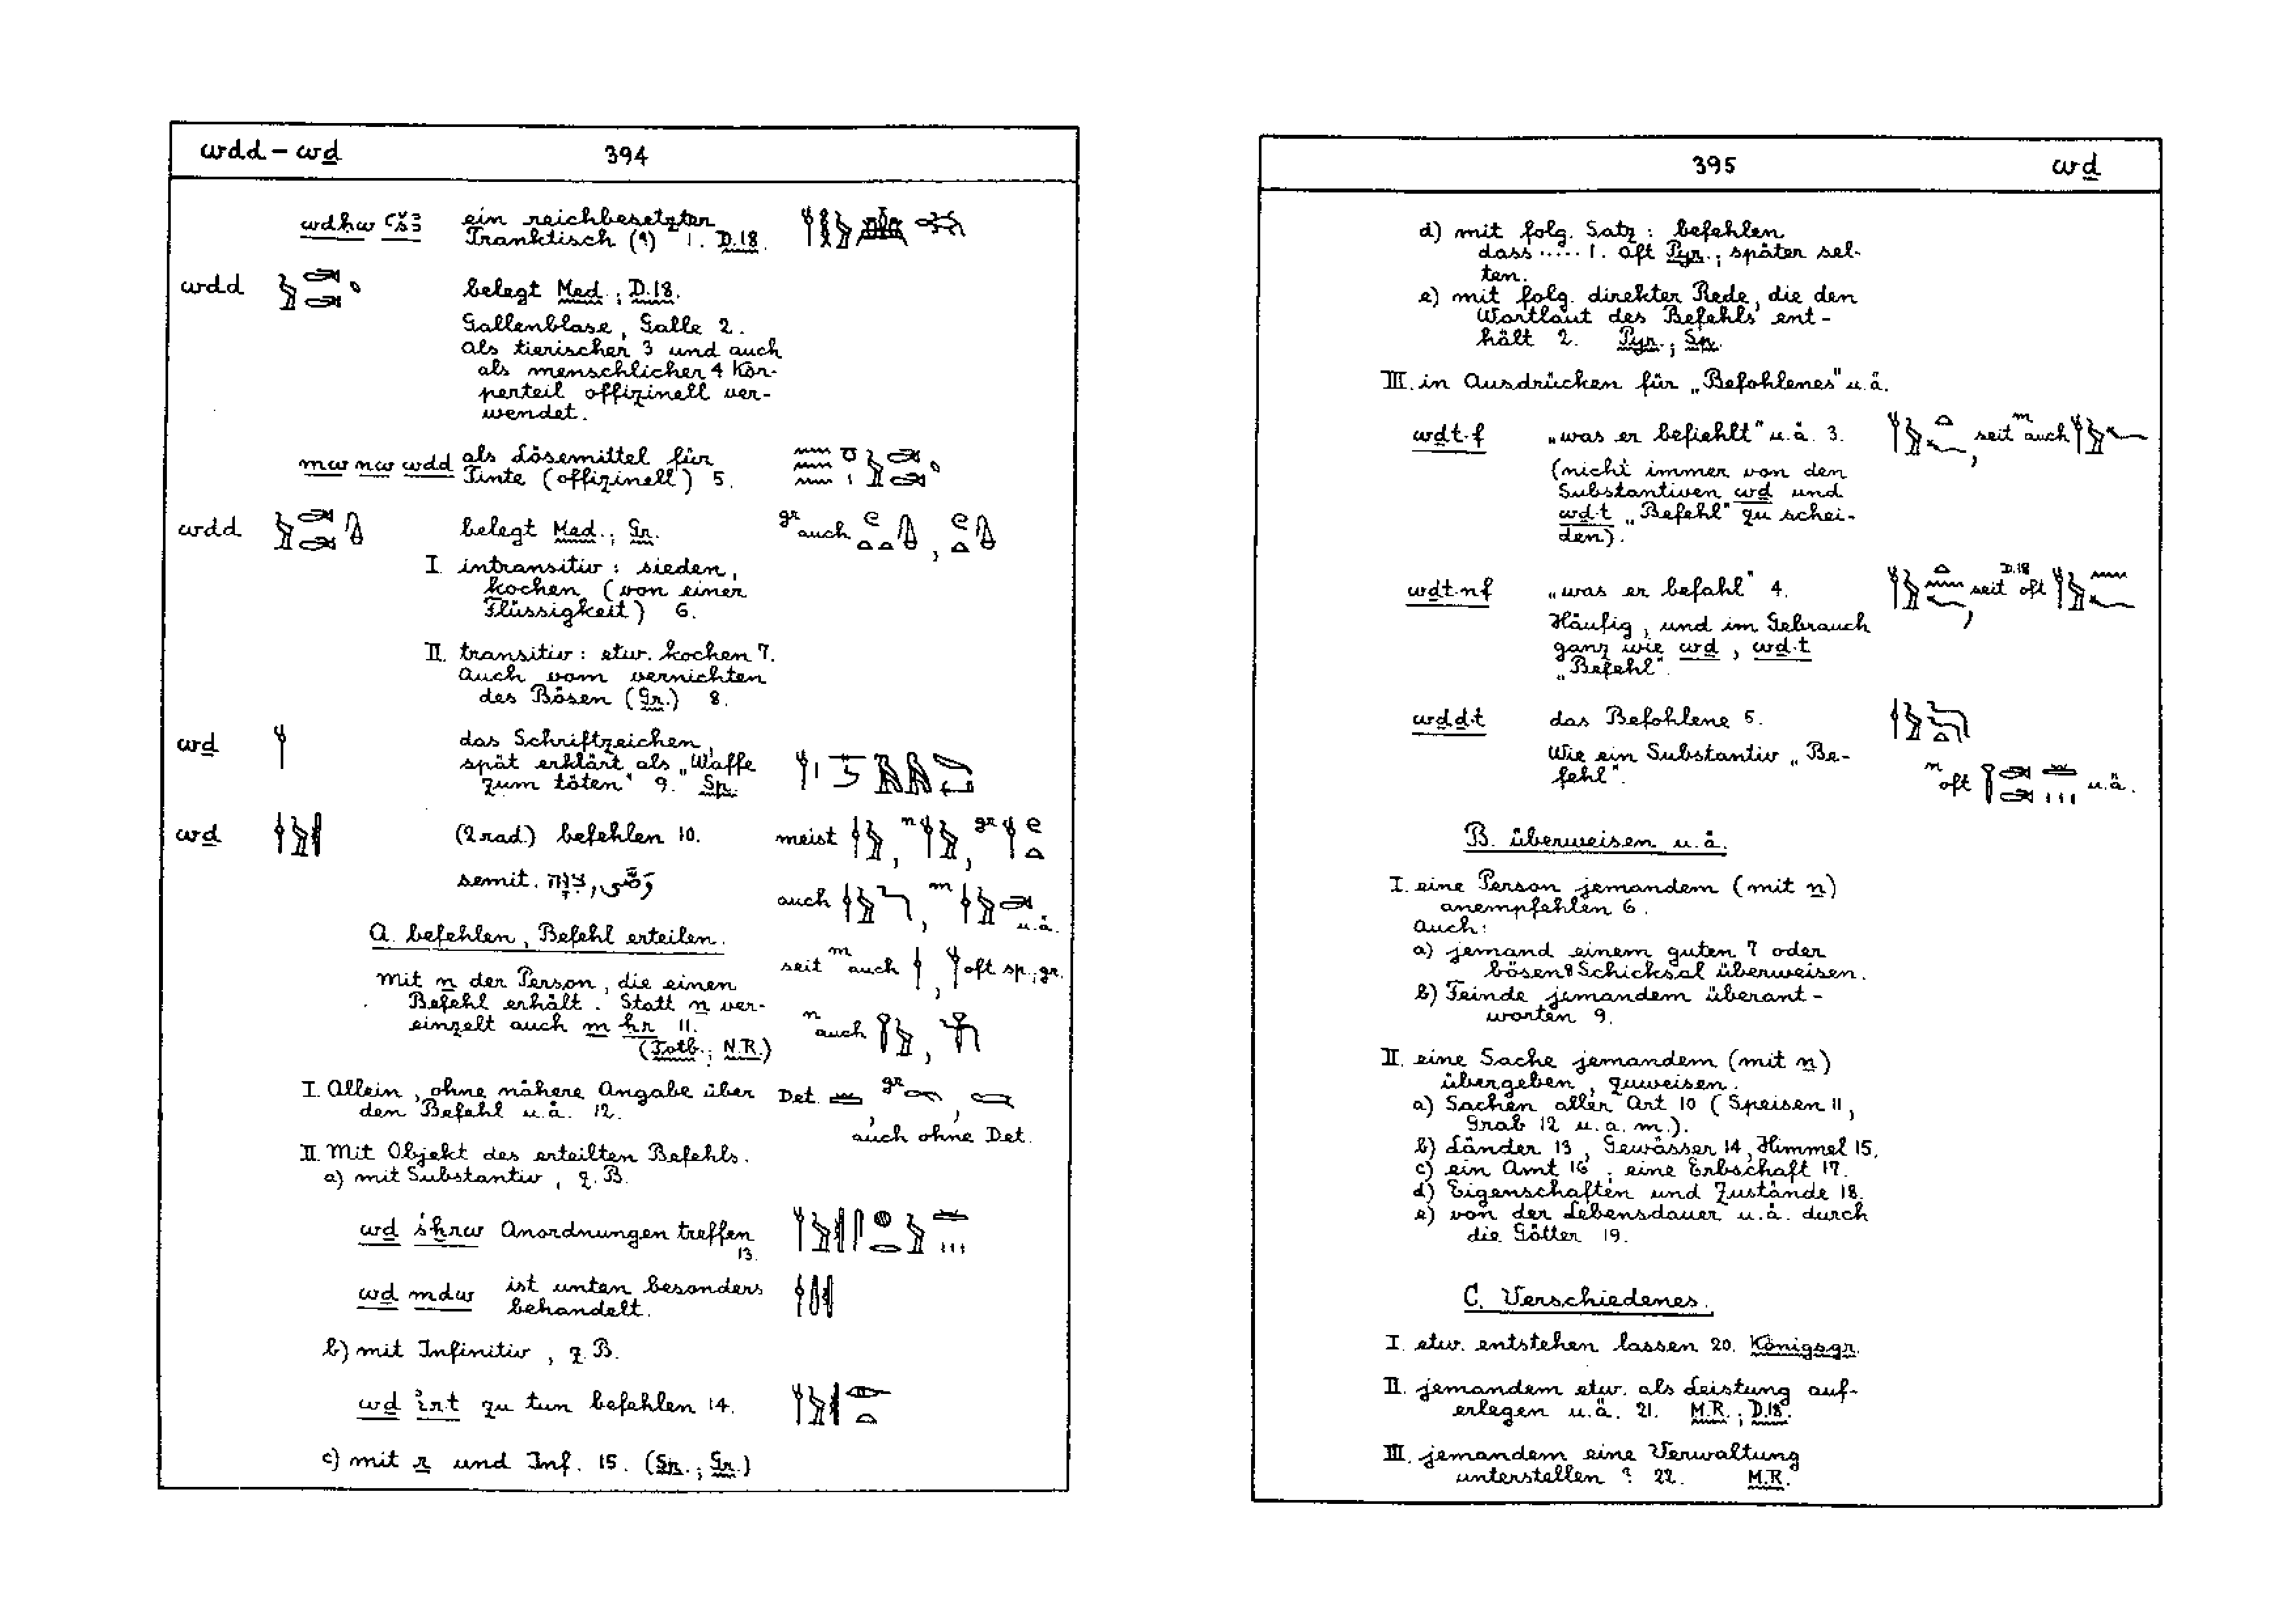 wdd – wḏ 394
wdḥw ꜥšꜣ ein reichbesetzter
Tranktisch (?) 1. D.18.
wdd belegt Med.; D.18.
Gallenblase, Galle 2.
Als tierischer 3 und auch
als menschlicher 4 Kör-
perteil offizinell ver-
wendet.
mw nw wdd als Lösemittel für
Tinte (offizinell) 5.
wdd belegt Med.; Gr. gr auch ,
I. intransitiv: sieden,
kochen (von einer
Flüssigkeit) 6.
II. transitiv: etw. kochen 7.
Auch vom vernichten
des Bösen (Gr.) 8.
wḏ das Schriftzeichen,
spät erklärt als „Waffe
zum töten" 9. Sp.
wḏ (2rad.) befehlen 10. meist , n , gr
semit. צוה, وَصَّى
auch , m u.ä.
A. befehlen, Befehl erteilen.
seit m auch , oft sp.; gr.
Mit n der Person, die einen
Befehl erhält. Statt n ver-
einzelt auch m ḥr 11.
(Totb.; N.R.)
n auch ,
I. Allein, ohne nähere Angabe über
den Befehl u.ä. 12.
Det. , gr ,
auch ohne Det.
II. Mit Objekt des erteilten Befehls.
a) mit Substantiv, z.B.
wḏ śḫrw Anordnungen treffen
13.
wḏ mdw ist unten besonders
behandelt.
b) mit Infinitiv, z.B.
wḏ ỉr.t zu tun befehlen 14.
c) mit r und Inf. 15. (Sp.; Gr.)
395 wḏ
d) mit folg. Satz: befehlen
dass ..... 1. Oft Pyr.; später sel-
ten.
e) mit folg. direkter Rede, die den
Wortlaut des Befehls ent-
hält 2. Pyr.; Sp.
III. in Ausdrücken für „Befohlenes" u.ä.
wḏt·f „was er befiehlt" u.ä. 3. , seit m auch
(nicht immer von den
Substantiven wḏ und
wḏ.t „Befehl" zu schei-
den).
wḏt·nf „was er befahl" 4. , seit D.18 oft
Häufig, und im Gebrauch
ganz wie wḏ, wḏ.t
„Befehl".
wḏḏ.t das Befohlene 5.
Wie ein Substantiv „Be-
fehl".
m oft u.ä.
B. überweisen u.ä.
I. eine Person jemandem (mit n)
anempfehlen 6.
Auch:
a) jemand einem guten 7 oder
bösen 8 Schicksal überweisen.
b) Feinde jemandem überant-
worten 9.
II. eine Sache jemandem (mit n)
übergeben, zuweisen.
a) Sachen aller Art 10 (Speisen 11,
Grab 12 u.a.m.).
b) Länder 13, Gewässer 14, Himmel 15.
c) ein Amt 16; eine Erbschaft 17.
d) Eigenschaften und Zustände 18.
e) von der Lebensdauer u.ä. durch
die Götter 19.
C. Verschiedenes.
I. etw. entstehen lassen 20. Königsgr.
II. jemandem etw. als Leistung auf-
erlegen u.ä. 21. M.R.; D.18.
III. jemandem eine Verwaltung
unterstellen ? 22. M.R.